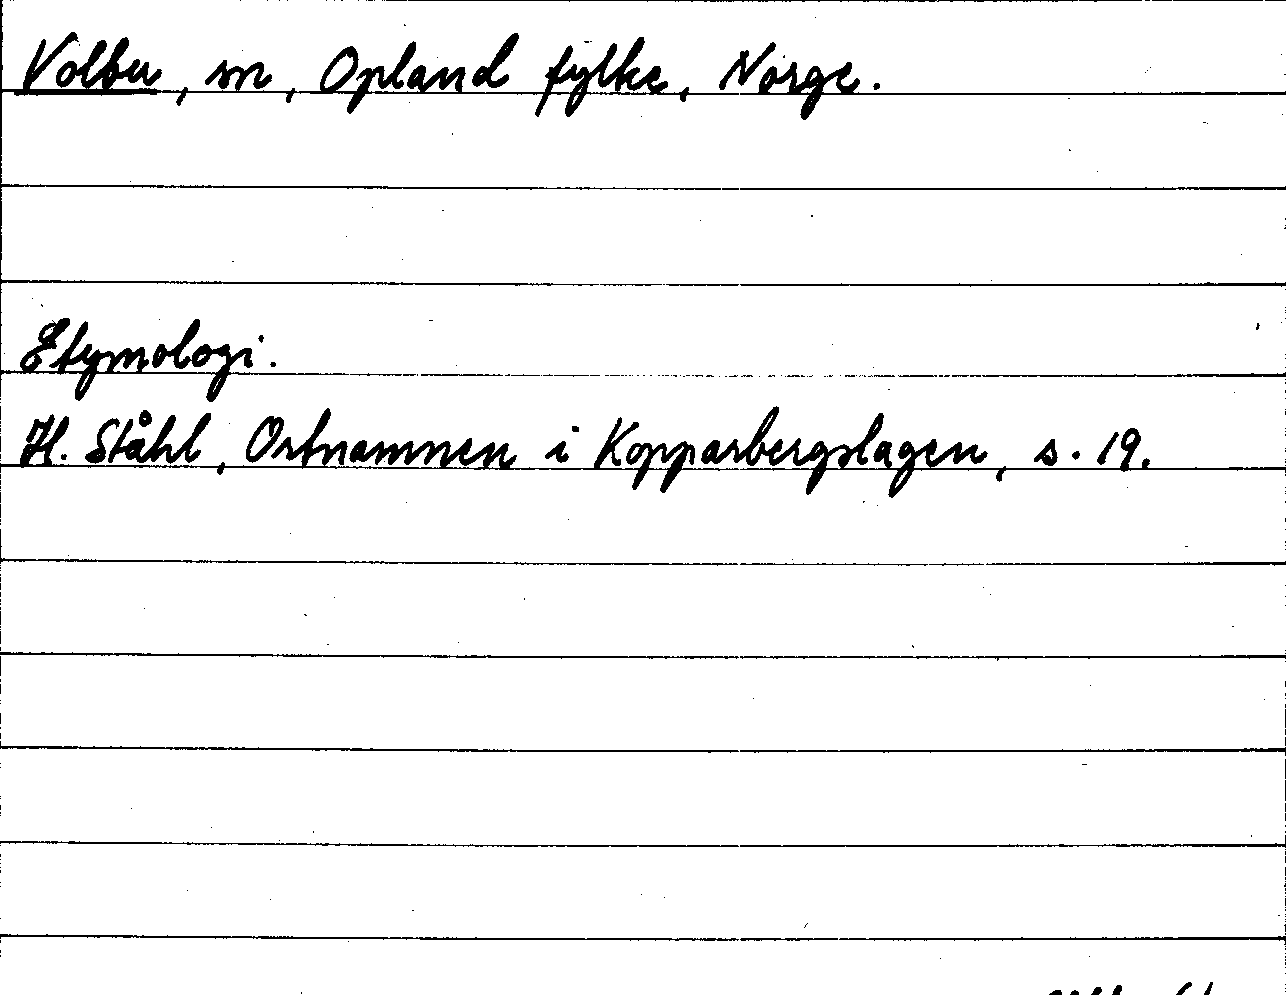 Volbu, sn, Opland fylke, Norge.
Etymologi.
H. Ståhl, Ortnamnen i Kopparbergslagen, s. 19.